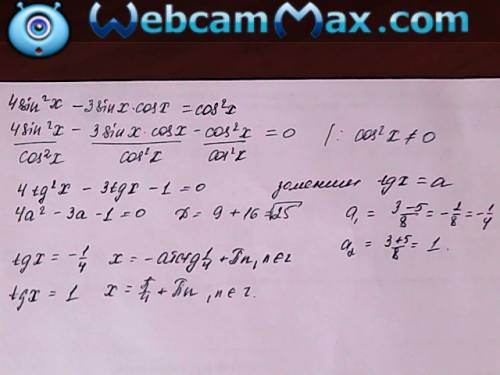 WebcamMax.com
4sin²x - 3sinx·cosx = cos²x
4sin²x/cos²x - 3sinx·cosx/cos²x - cos²x/cos²x = 0 /: cos²x ≠ 0
4tg²x - 3tgx - 1 = 0 заменим tgx = a
4a² - 3a - 1 = 0 D = 9 + 16 = √25 a₁ = 3-5/8 = -1/8 = -1/4
a₂ = 3+5/8 = 1.
tgx = -1/4 x = -arctg 1/4 + Πn, n∈z
tgx = 1 x = π/4 + Πn, n∈z.